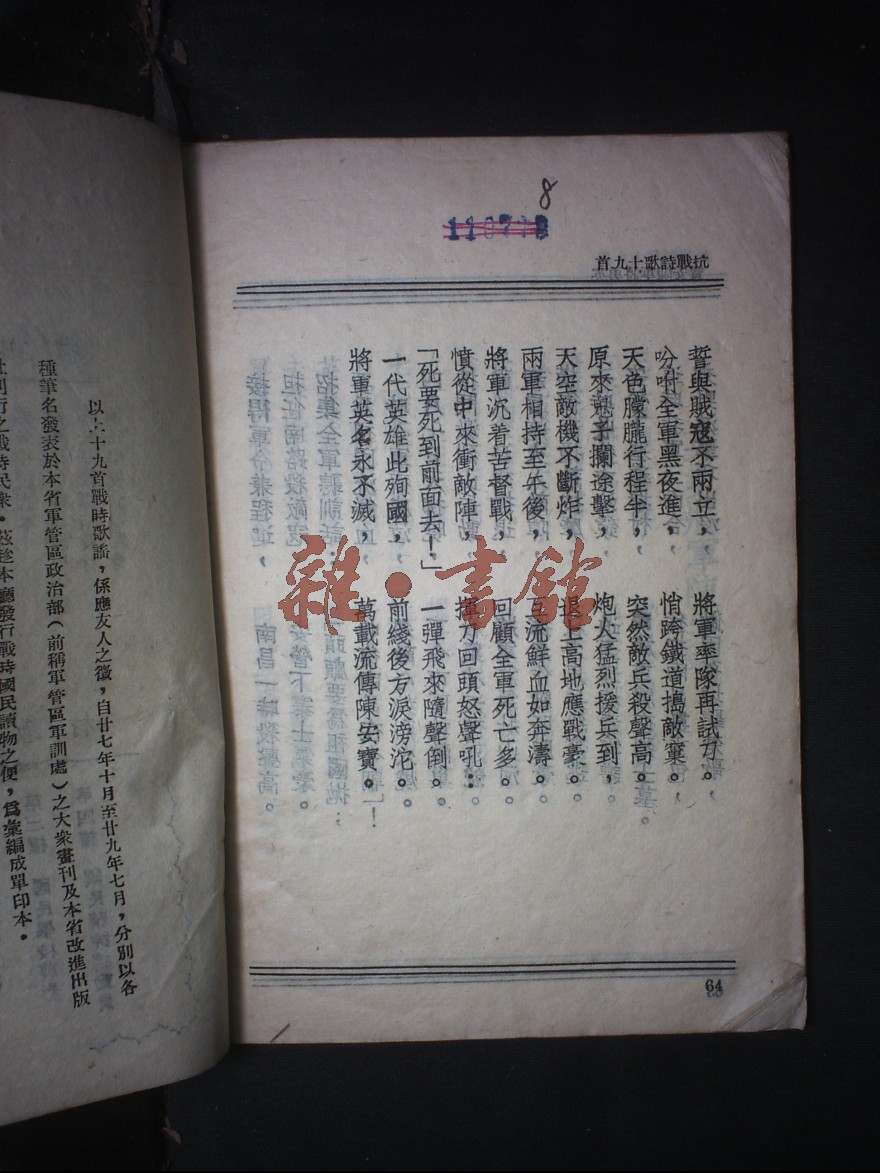 8
抗戰詩歌十九首
誓與賊寇不兩立，將軍率隊再試刀。
吩咐全軍黑夜進，悄跨鐵道搗敵窠。
天色朦朧行程半，突然敵兵殺聲高。
原來兇子攔途擊，炮火猛烈援兵到，
天空敵機不斷炸，退上高地應戰豪。
兩軍相持至午後，互流鮮血如奔濤。
將軍沉着苦督戰，回顧全軍死亡多。
憤從中來衝敵陣，揮刀回頭怒聲吼：
「死要死到前面去！」一彈飛來隨聲倒。
一代英雄此殉國，前綫後方淚滂沱。
將軍英名永不滅，萬載流傳陳安寶。
64
雜·書館
以上十九首戰時歌謠，係應友人之徵，自廿七年十月至廿九年七月，分別以各
種筆名發表於本省軍管區政治部（前稱軍管區軍訓處）之大衆畫刊及本省改進出版
社刊行之戰時民衆。茲趁本廳發行戰時國民讀物之便，爲彙編成單印本。